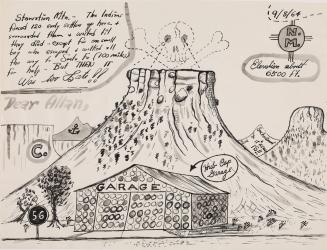 Starvation Mtn. - The Indians
forced 120 early settlers up here &
surrounded them & waited till
they died - except for one small
boy who escaped & walked all
the way to Santa Fe (700 miles)
for help - But THEN IT
Was too Late!!
Dear Allan,
9/8/64
N.M.
Elevation about
6500 Ft.
C.
Hub Cap
Garage
GARAGE
56